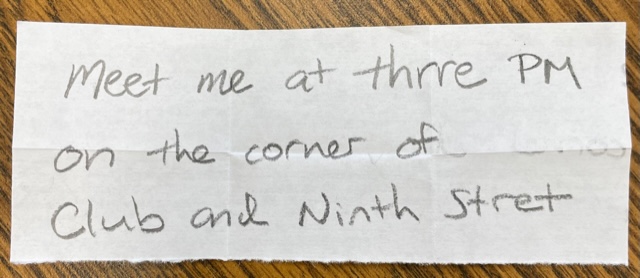 Meet me at thrre PM
on the corner of
Club and Ninth Stret